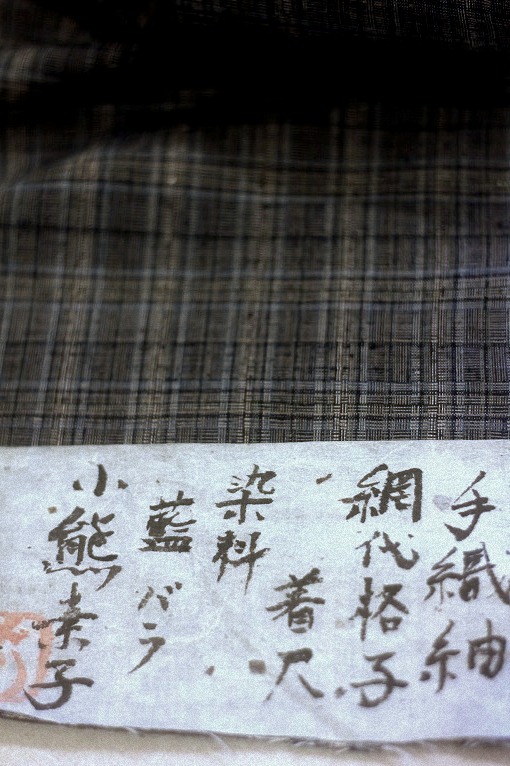 手織紬
網代格子
着尺
染料
藍バラ
小熊素子